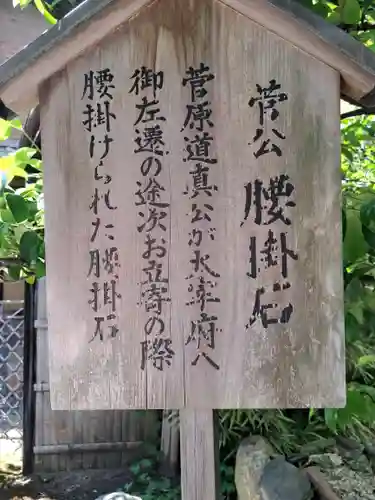 菅公腰掛石
菅原道真公が大宰府へ
御左遷の途次お立寄の際
腰掛けられた腰掛石